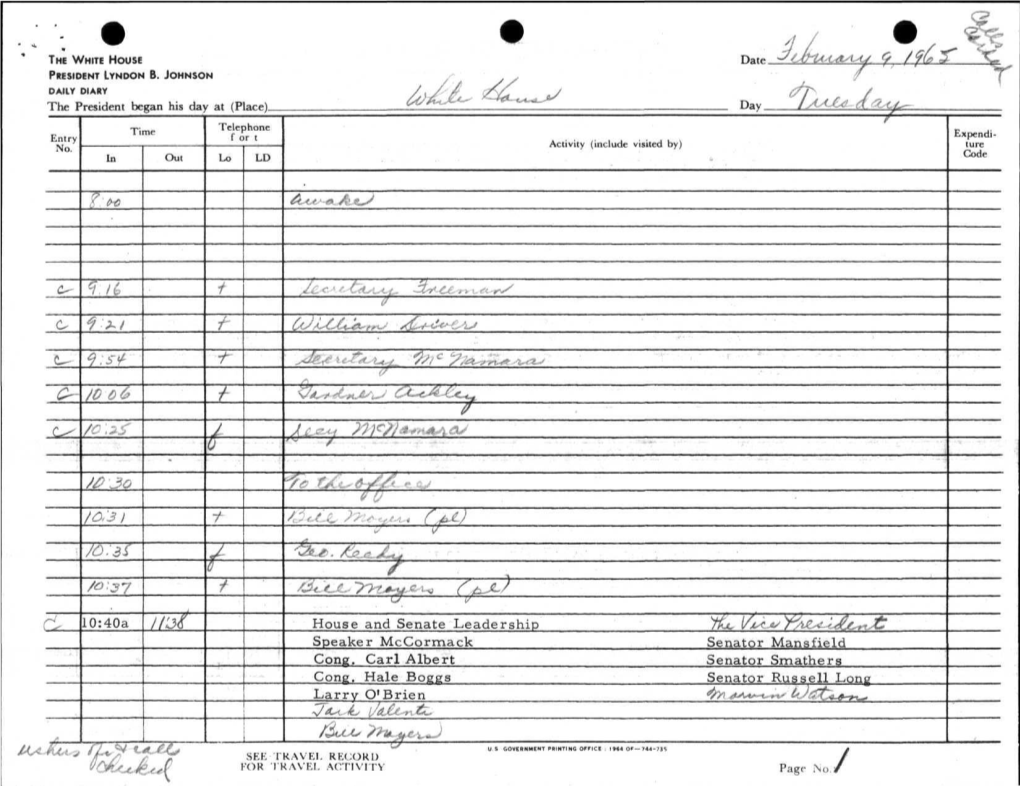 Calls Carded
THE WHITE HOUSE Date February 9, 1965
PRESIDENT LYNDON B. JOHNSON
DAILY DIARY
The President began his day at (Place) White House Day Tuesday
Entry No. Time Telephone f or t Activity (include visited by) Expendi-ture Code
In Out Lo LD
8:00 Awake
c 9:16 t Secretary Freeman
c 9:21 t William Driver
c 9:54 t Secretary McNamara
c 10:06 t Gardner Ackley
c 10:25 f Secy McNamara
10:30 To the office
10:31 t Bill Moyers (pl)
10:35 f Geo. Reedy
10:37 t Bill Moyers (pl)
c 10:40a 11:38 House and Senate Leadership The Vice President
Speaker McCormack Senator Mansfield
Cong. Carl Albert Senator Smathers
Cong. Hale Boggs Senator Russell Long
Larry O'Brien Marvin Watson
Jack Valenti
Bill Moyers
ushers calls checked
U.S. GOVERNMENT PRINTING OFFICE : 1964 OF—744-735
SEE TRAVEL RECORD
FOR TRAVEL ACTIVITY Page No. 1